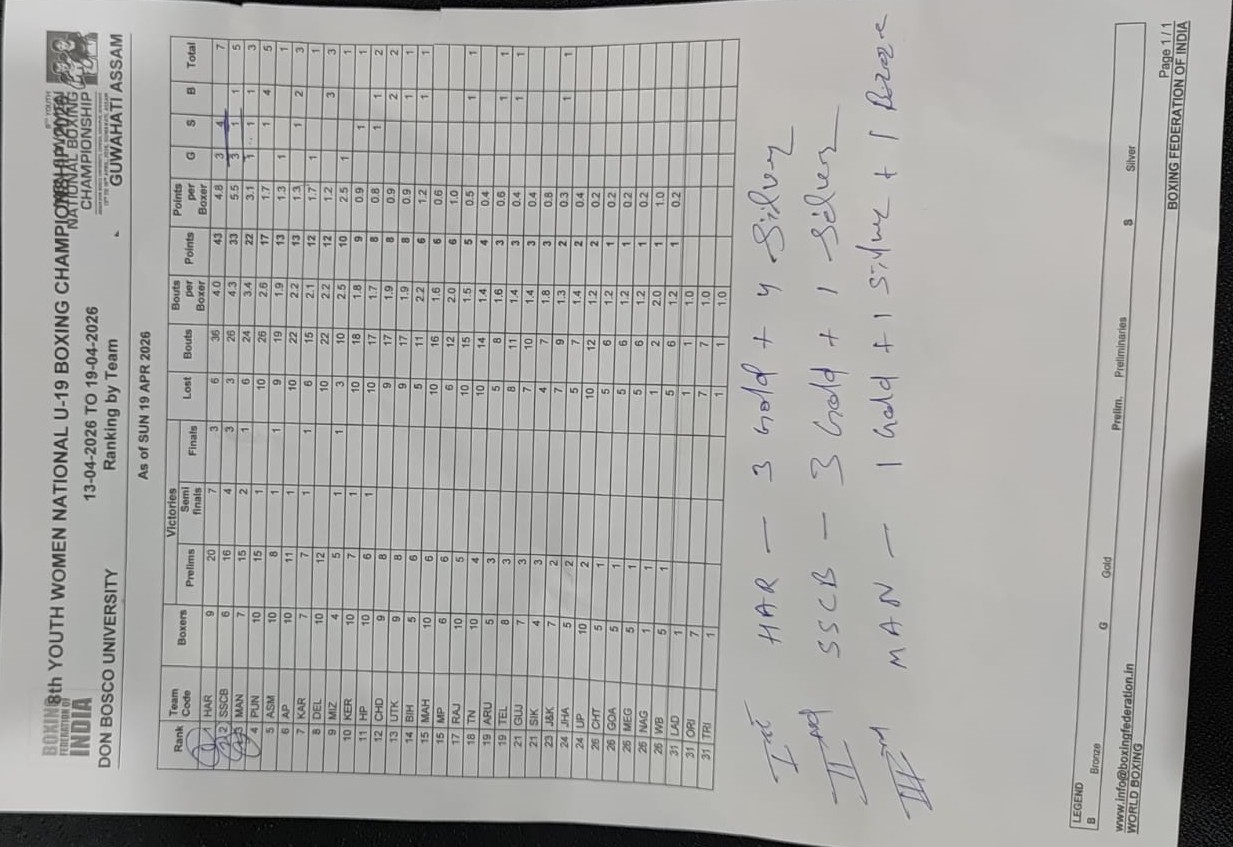 BOXING
FEDERATION OF
INDIA
8th YOUTH WOMEN NATIONAL U-19 BOXING CHAMPIONSHIP 2026
NATIONAL BOXING
CHAMPIONSHIP
13-04-2026 TO 19-04-2026
DON BOSCO UNIVERSITY Ranking by Team GUWAHATI ASSAM
As of SUN 19 APR 2026
Rank Team Code Boxers Victories Prelims Semi finals Finals Lost Bouts Bouts per Boxer Points Points per Boxer G S B Total
HAR 9 20 7 3 6 36 4.0 43 4.8 3 4 7
2 SSCB 6 16 4 3 3 26 4.3 33 5.5 3 1 1 5
MAN 7 15 2 1 6 24 3.4 22 3.1 1 1 1 3
4 PUN 10 15 1 10 26 2.6 17 1.7 1 4 5
5 ASM 10 8 1 1 9 19 1.9 13 1.3 1 1
6 AP 10 11 1 10 22 2.2 13 1.3 1 2 3
7 KAR 7 7 1 1 6 15 2.1 12 1.7 1 1
8 DEL 10 12 10 22 2.2 12 1.2 3 3
9 MIZ 4 5 1 1 3 10 2.5 10 2.5 1 1
10 KER 10 7 1 10 18 1.8 9 0.9 1 1
11 HP 10 6 1 10 17 1.7 8 0.8 1 1 2
12 CHD 9 8 9 17 1.9 8 0.9 2 2
13 UTK 9 8 9 17 1.9 8 0.9 1 1
14 BIH 5 6 5 11 2.2 6 1.2 1 1
15 MAH 10 6 10 16 1.6 6 0.6
15 MP 6 6 6 12 2.0 6 1.0
17 RAJ 10 5 10 15 1.5 5 0.5 1 1
18 TN 10 4 10 14 1.4 4 0.4
19 ARU 5 3 5 8 1.6 3 0.6 1 1
19 TEL 8 3 8 11 1.4 3 0.4 1 1
21 GUJ 7 3 7 10 1.4 3 0.4
21 SIK 4 3 4 7 1.8 3 0.8
23 J&K 7 2 7 9 1.3 2 0.3 1 1
24 JHA 5 2 5 7 1.4 2 0.4
24 UP 10 2 10 12 1.2 2 0.2
26 CHT 5 1 5 6 1.2 1 0.2
26 GOA 5 1 5 6 1.2 1 0.2
26 MEG 5 1 5 6 1.2 1 0.2
26 NAG 1 1 1 2 2.0 1 1.0
26 WB 5 1 5 6 1.2 1 0.2
31 LAD 1 1 1 1.0
31 ORI 7 7 7 1.0
31 TRI 1 1 1 1.0
Ist HAR - 3 Gold + 4 Silver
IInd SSCB - 3 Gold + 1 Silver
IIIrd MAN - 1 Gold + 1 Silver + 1 Bronze
LEGEND
B Bronze G Gold Prelim. Preliminaries S Silver
www.info@boxingfederation.in Page 1 / 1
WORLD BOXING BOXING FEDERATION OF INDIA